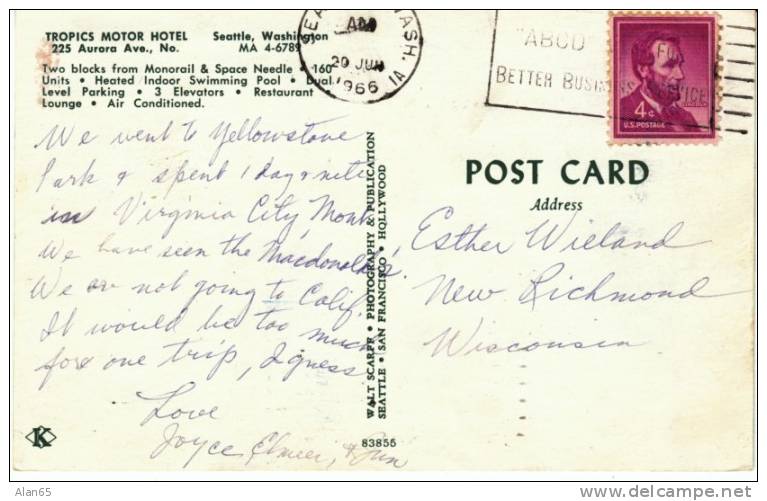 TROPICS MOTOR HOTEL Seattle, Washington
225 Aurora Ave., No. MA 4-6789
Two blocks from Monorail & Space Needle • 160
Units • Heated Indoor Swimming Pool • Dual
Level Parking • 3 Elevators • Restaurant •
Lounge • Air Conditioned.
WASH.
AM
20 JUN
1966
"ABCD"
FOR
BETTER BUSINESS SERVICE
4¢
U.S. POSTAGE
We went to Yellowstone
Park & spent 1 day & nite
in Virginia City, Mont.
We have seen the Macdonalds.
We are not going to Calif.
It would be too much
for one trip, I guess.
Love
Joyce, Elmer, &
WALT SCARFF • PHOTOGRAPHY & PUBLICATION
SEATTLE • SAN FRANCISCO • HOLLYWOOD
POST CARD
Address
Esther Wieland
New Richmond
Wisconsin
K
83855
Alan65
delcampe.net